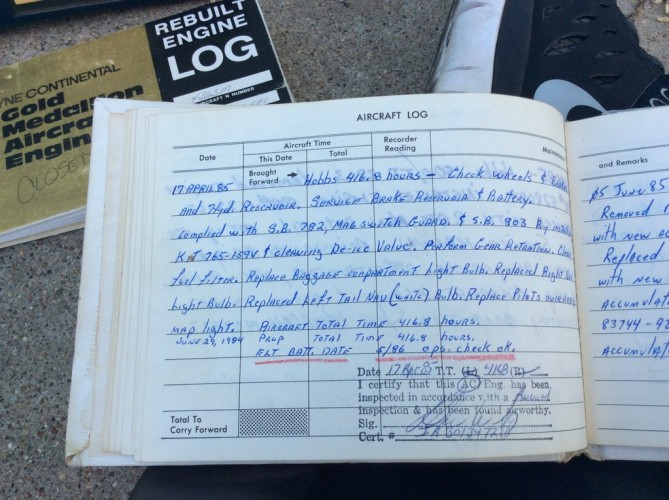 REBUILT
ENGINE
LOG
AIRCRAFT N NUMBER
YNE CONTINENTAL
Gold
Medallion
Aircraft
Engine
CLOSED
AIRCRAFT LOG
Date
Aircraft Time
This Date
Total
Recorder
Reading
Brought
Forward
17 APRIL 85 Hobbs 416.8 hours — Check wheels & Brake
and Hyd. Reservoir. Service Brake Reservoir & Battery.
complied with S.B. 782, Mag switch Guard, & S.B. 803 By
Kit 765-159V & cleaning De-ice Valve. Perform Gear Retration. Clean
fuel filter. Replace Baggage compartment light Bulb. Replaced Right
light Bulb. Replaced left Tail Nav (white) Bulb. Replace Pilots
map light. Aircraft Total Time 416.8 hours.
JUNE 29, 1984 Prop Total Time 416.8 hours.
ELT Batt. DATE 5/86 ops. check ok.
Date 17 Apr 85 T.T. 416.8
I certify that this (AC) Eng. has been
inspected in accordance with a Annual
inspection & has been found airworthy.
Sig.
Cert. #
Total To
Carry Forward
and Remarks
05 JUNE 85
Removed
with new
Replaced
with new
Accumulat
83744-
Accumulat